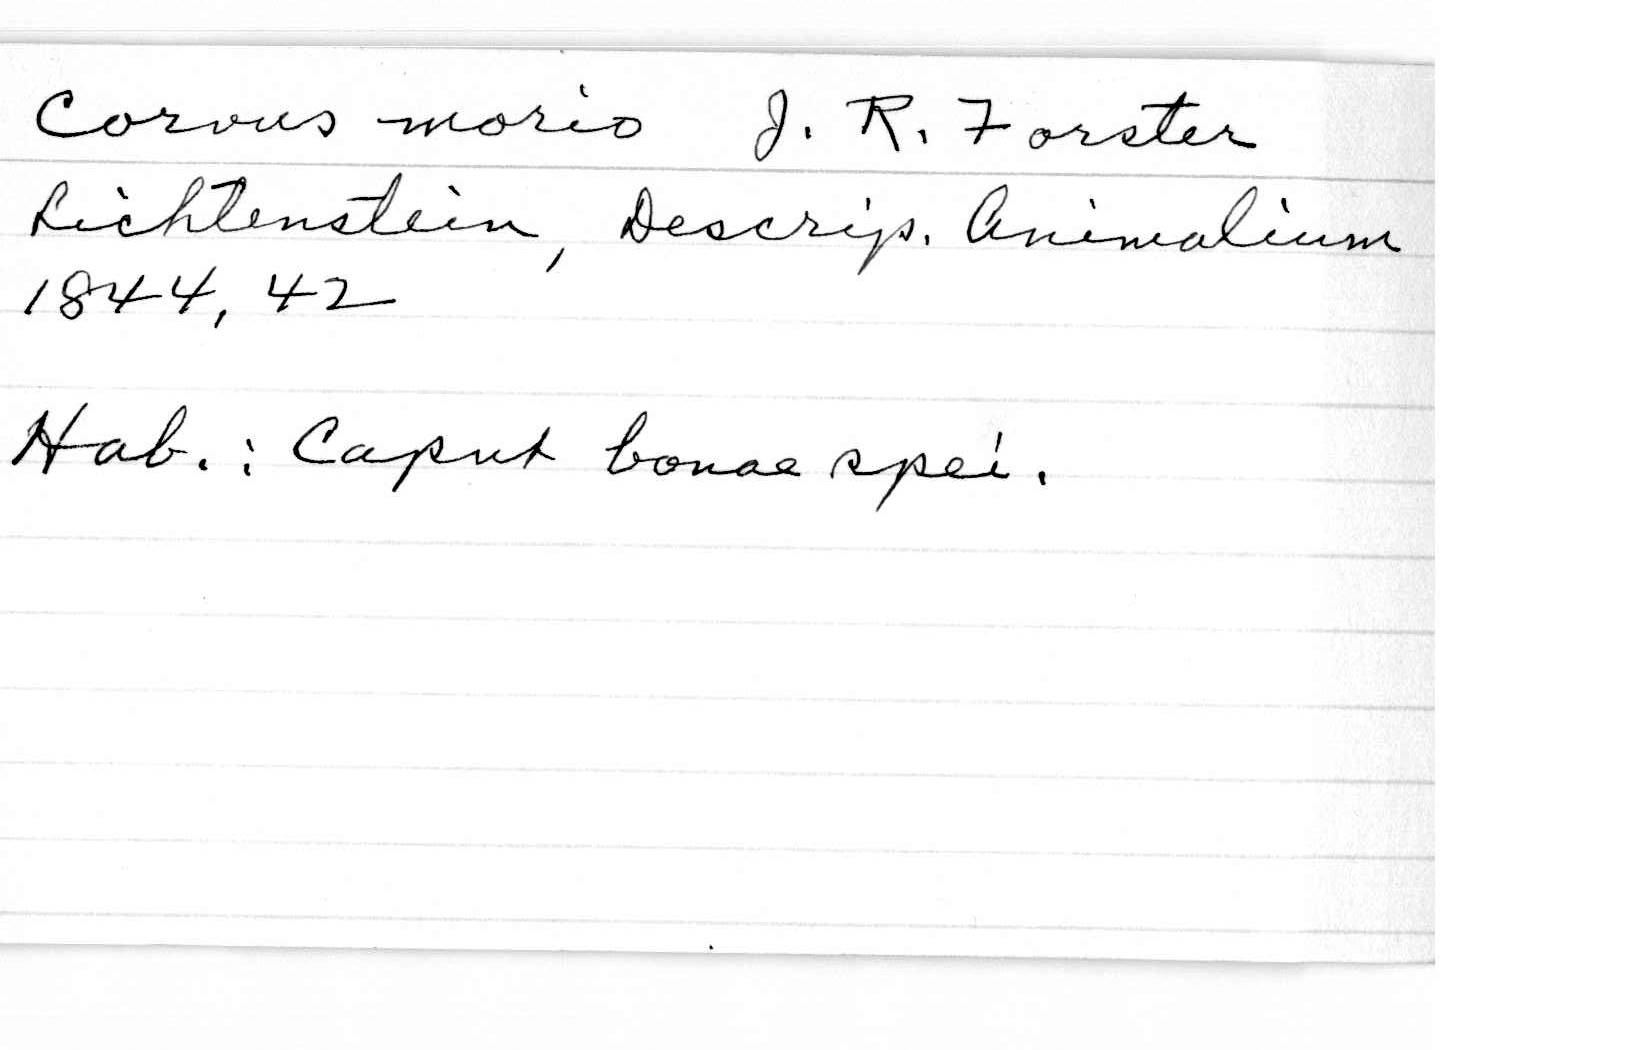 Corvus morio J. R. Forster
Lichtenstein, Descrip. Animalium
1844, 42
Hab.: Caput bonae spei.